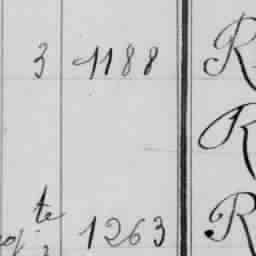 3 1188 R
R
te 1263 R